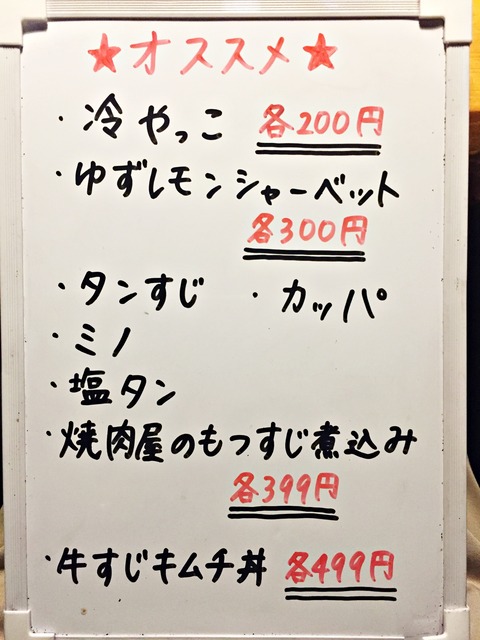 ★オススメ★
・冷やっこ 各200円
・ゆずレモンシャーベット
各300円
・タンすじ ・カッパ
・ミノ
・塩タン
・焼肉屋のもつすじ煮込み
各399円
・牛すじキムチ丼 各499円